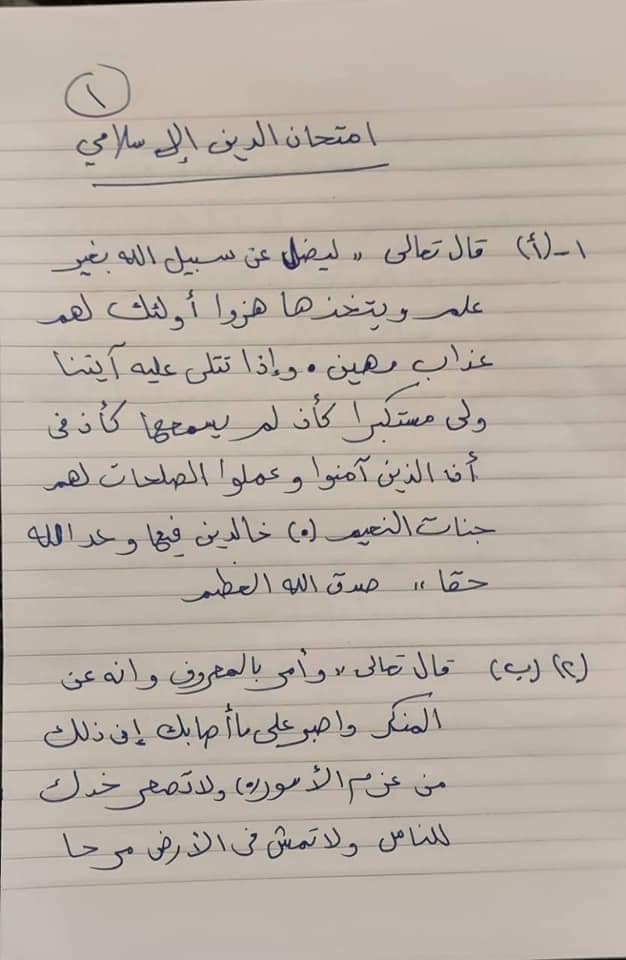 ١
امتحان الدين الإسلامي
١-(أ) قال تعالى " ليضل عن سبيل الله بغير
علم ويتخذها هزوا أولئك لهم
عذاب مهين . وإذا تتلى عليه آيتنا
ولى مستكبرا كأن لم يسمعها كأن فى
أن الذين آمنوا وعملوا الصلحات لهم
جنات النعيم (٥) خالدين فيها وعد الله
حقا " صدق الله العظيم
(٢) (ب) قال تعالى " وأمر بالمعروف وانه عن
المنكر واصبر على ما أصابك إن ذلك
من عزم الأمور (٥) ولا تصعر خدك
للناس ولا تمش فى الأرض مرحا